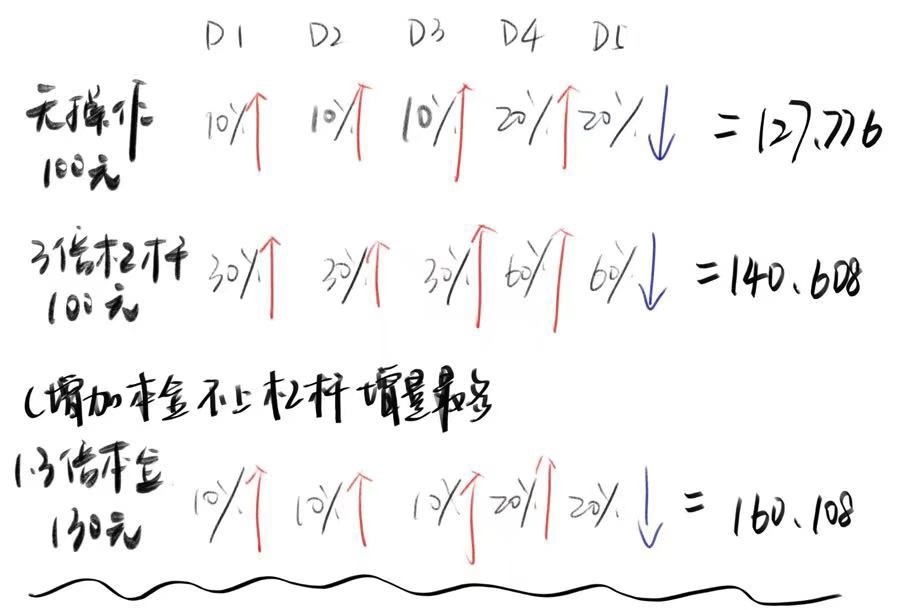 D1 D2 D3 D4 D5
无操作 10% 10% 10% 20% 20% = 127.776
100元
3倍杠杆 30% 30% 30% 60% 60% = 140.608
100元
(增加本金不上杠杆增量最多
1.3倍本金 10% 10% 10% 20% 20% = 160.108
130元